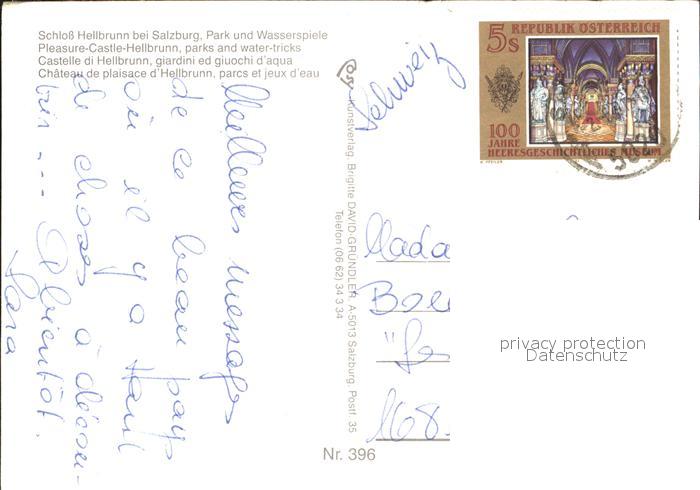 Schloß Hellbrunn bei Salzburg, Park und Wasserspiele
Pleasure-Castle-Hellbrunn, parks and water-tricks
Castelle di Hellbrunn, giardini ed giuochi d'aqua
Château de plaisace d'Hellbrunn, parcs et jeux d'eau
Meilleurs messages
de ce beau pays
où il y a tant
de choses à décou-
vrir ... A bientôt.
Sara
Kunstverlag Brigitte DAVID-GRÜNDLER, A-5013 Salzburg, Postf. 35
Telefon (06 62) 34 3 34
Nr. 396
5 S REPUBLIK ÖSTERREICH
100
JAHRE
HEERESGESCHICHTLICHES MUSEUM
Schweiz
Mada
168
privacy protection
Datenschutz